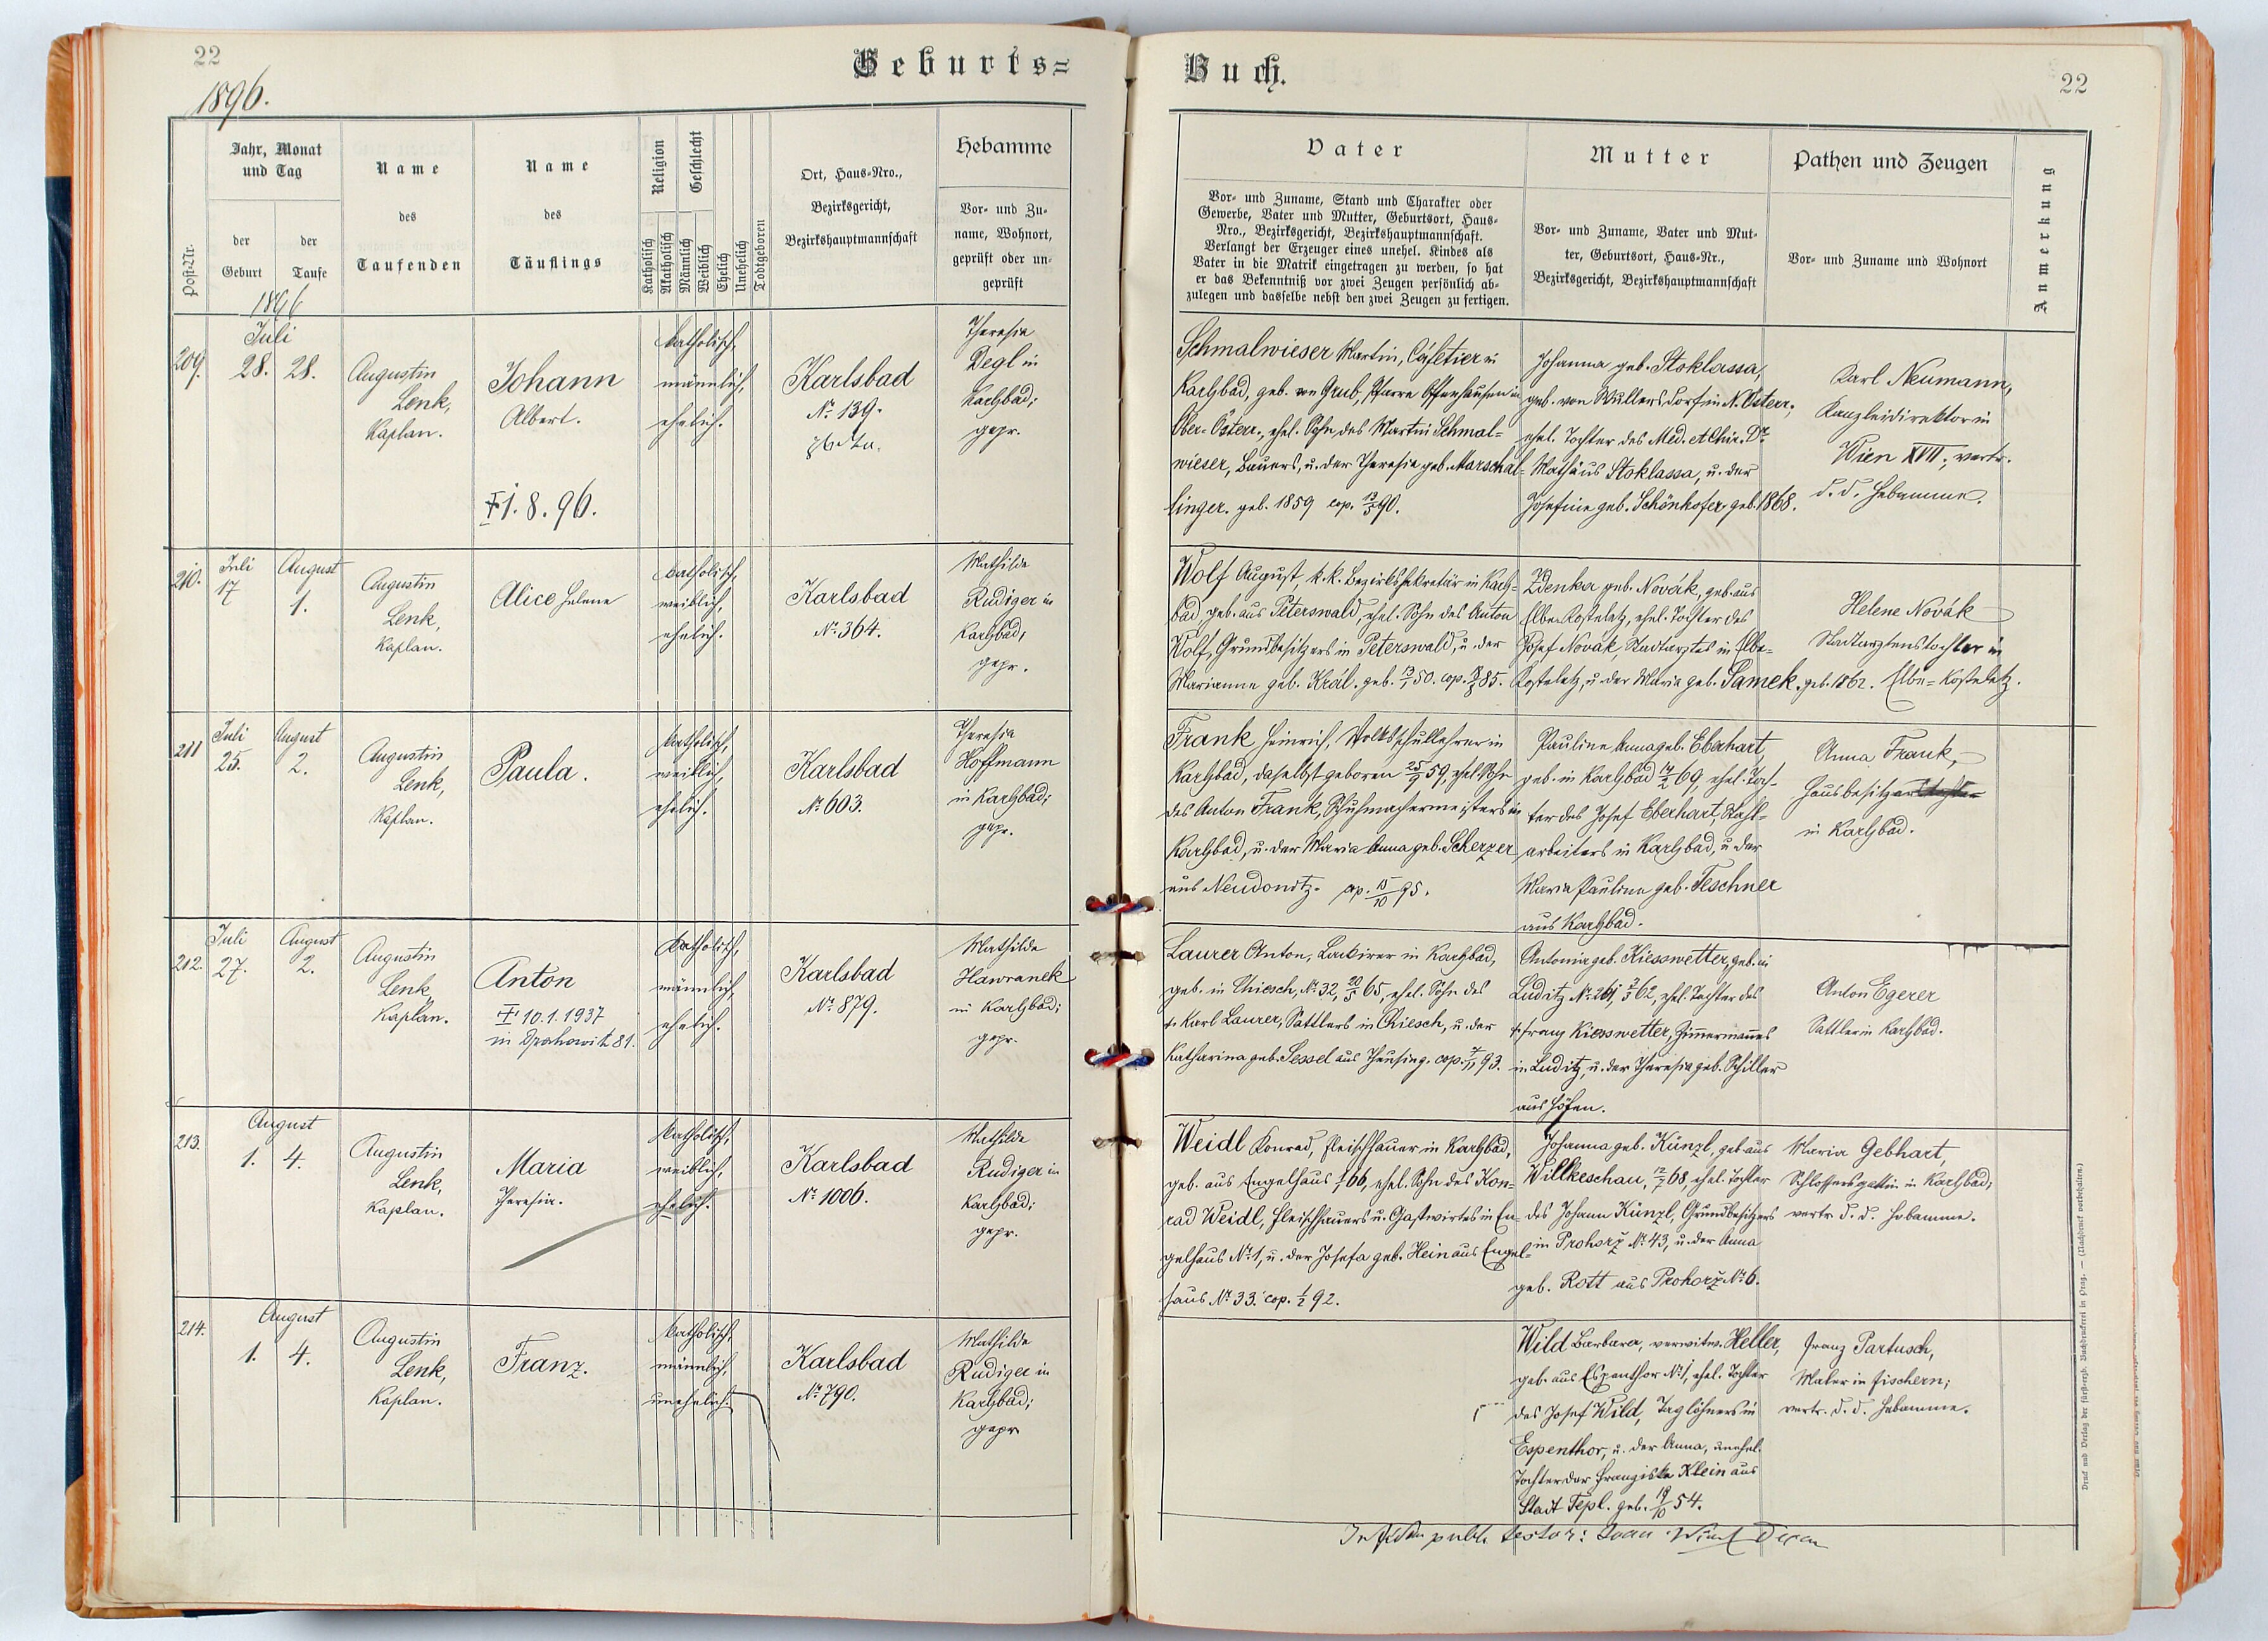 22
1896.
Geburts=
Post-Nr.
Jahr, Monat
und Tag
der
Geburt
der
Taufe
Name
des
Taufenden
Name
des
Täuflings
Religion
Geschlecht
Katholisch
Akatholisch
Männlich
Weiblich
Ehelich
Unehelich
Todtgeboren
Ort, Haus-Nro.,
Bezirksgericht,
Bezirkshauptmannschaft
Hebamme
Vor- und Zu-
name, Wohnort,
geprüft oder un-
geprüft
1896
209.
Juli
28. 28.
Augustin
Lenk,
Kaplan.
Johann
Albert.
1.8.96.
katholisch,
männlich,
ehelich.
Karlsbad
No. 139.
Theresia
Degl in
Karlsbad;
gepr.
210.
Juli
17
August
1.
Augustin
Lenk,
Kaplan.
Alice Helene
katholisch,
weiblich,
ehelich.
Karlsbad
No. 364.
Mathilde
Rudiger in
Karlsbad;
gepr.
211
Juli
25.
August
2.
Augustin
Lenk,
Kaplan.
Paula.
katholisch,
weiblich,
ehelich.
Karlsbad
No. 603.
Theresia
Hoffmann
in Karlsbad;
gepr.
212.
Juli
27.
August
2.
Augustin
Lenk,
Kaplan.
Anton
10.1.1937
in Drahowitz 81.
katholisch,
männlich,
ehelich.
Karlsbad
No. 879.
Mathilde
Hawranek
in Karlsbad;
gepr.
213.
August
1. 4.
Augustin
Lenk,
Kaplan.
Maria
Theresia.
katholisch,
weiblich,
ehelich.
Karlsbad
No. 1006.
Mathilde
Rudiger in
Karlsbad;
gepr.
214.
August
1. 4.
Augustin
Lenk,
Kaplan.
Franz.
katholisch,
männlich,
unehelich.
Karlsbad
No. 790.
Mathilde
Rudiger in
Karlsbad;
gepr
Buch.
22
Vater
Vor- und Zuname, Stand und Charakter oder
Gewerbe, Vater und Mutter, Geburtsort, Haus-
Nro., Bezirksgericht, Bezirkshauptmannschaft.
Verlangt der Erzeuger eines unehel. Kindes als
Vater in die Matrik eingetragen zu werden, so hat
er das Bekenntniß vor zwei Zeugen persönlich ab-
zulegen und dasselbe nebst den zwei Zeugen zu fertigen.
Mutter
Vor- und Zuname, Vater und Mut-
ter, Geburtsort, Haus-Nr.,
Bezirksgericht, Bezirkshauptmannschaft
Pathen und Zeugen
Vor- und Zuname und Wohnort
Anmerkung
Schmalwieser Martin, Cafetier in
Karlsbad, geb. von Grub, Pfarre Offenhausen in
Ober-Österr., ehel. Sohn des Martin Schmal=
wieser, Bauers, u. der Theresia geb. Marschal=
linger. geb. 1859 cop. 13/5 90.
Johanna geb. Stoklassa,
geb. von Wullersdorf in N. Österr.,
ehel. Tochter des Med. et Chir. Dr.
Mathäus Stoklassa, u. der
Josefine geb. Schönhofer, geb. 1868.
Karl Neumann,
Kanzleidirektor in
Wien XVII; vertr.
d. d. Hebamme.
Wolf August, k.k. Bezirkssekretär in Karls=
bad, geb. aus Peterswald, ehel. Sohn des Anton
Wolf, Grundbesitzers in Peterswald, u. der
Marianne geb. Král. geb. 50. cop. 85.
Zdenka geb. Novák, geb. aus
Elbe-Kosteletz, ehel. Tochter des
Josef Novák, Stadtarztes in Elbe=
Kosteletz, u. der Maria geb. Samek. geb. 1862.
Helene Novák
Stadtarztenstochter in
Elbe=Kosteletz.
Frank Heinrich, Volksschullehrer in
Karlsbad, daselbst geboren 59, ehel. Sohn
des Anton Frank, Schuhmachermeisters in
Karlsbad, u. der Maria Anna geb. Scherzer
aus Neudonitz. cop. 15/10 95.
Pauline Anna geb. Eberhart,
geb. in Karlsbad 69, ehel. Toch=
ter des Josef Eberhart, Stahl=
arbeiters in Karlsbad, u. der
Maria Pauline geb. Teschner
aus Karlsbad.
Anna Frank,
Hausbesitzers
in Karlsbad.
Laurer Anton, Lakirer in Karlsbad,
geb. in Chiesch, No. 32, 20/5 65, ehel. Sohn des
† Karl Laurer, Sattlers in Chiesch, u. der
Katharina geb. Sessel aus Theusing. cop. 93.
Antonia geb. Kiesswetter, geb. in
Luditz No. 261, 62, ehel. Tochter des
† Franz Kiesswetter, Zimmermannes
in Luditz, u. der Theresia geb. Schiller
aus Höfen.
Anton Egerer
Sattler in Karlsbad.
Weidl Konrad, Fleischhauer in Karlsbad,
geb. aus Engelhaus 66, ehel. Sohn des Kon=
rad Weidl, Fleischhauers u. Gastwirtes in En=
gelhaus No. 1, u. der Josefa geb. Hein aus Engel=
haus No. 33. cop. 1/2 92.
Johanna geb. Künzl, geb. aus
Willkeschau, 68, ehel. Tochter
des Johann Künzl, Grundbesitzers
in Prohorž No. 43, u. der Anna
geb. Rott aus Prohorž No. 6.
Maria Gebhart,
Schlossersgattin in Karlsbad;
vertr. d. d. Hebamme.
Wild Barbara, verwitw. Heller,
geb. aus Espenthor No. 1, ehel. Tochter
des Josef Wild, Taglöhners in
Espenthor, u. der Anna, unehel.
Tochter der Franziska Klein aus
Stadt Tepl. geb. 54.
Franz Partusch,
Maler in Fischern;
vertr. d. d. Hebamme.
In fidem publ. testor:
Druck und Verlag der fürst-erzb. Buchdruckerei in Prag. — (Nachdruck vorbehalten.)